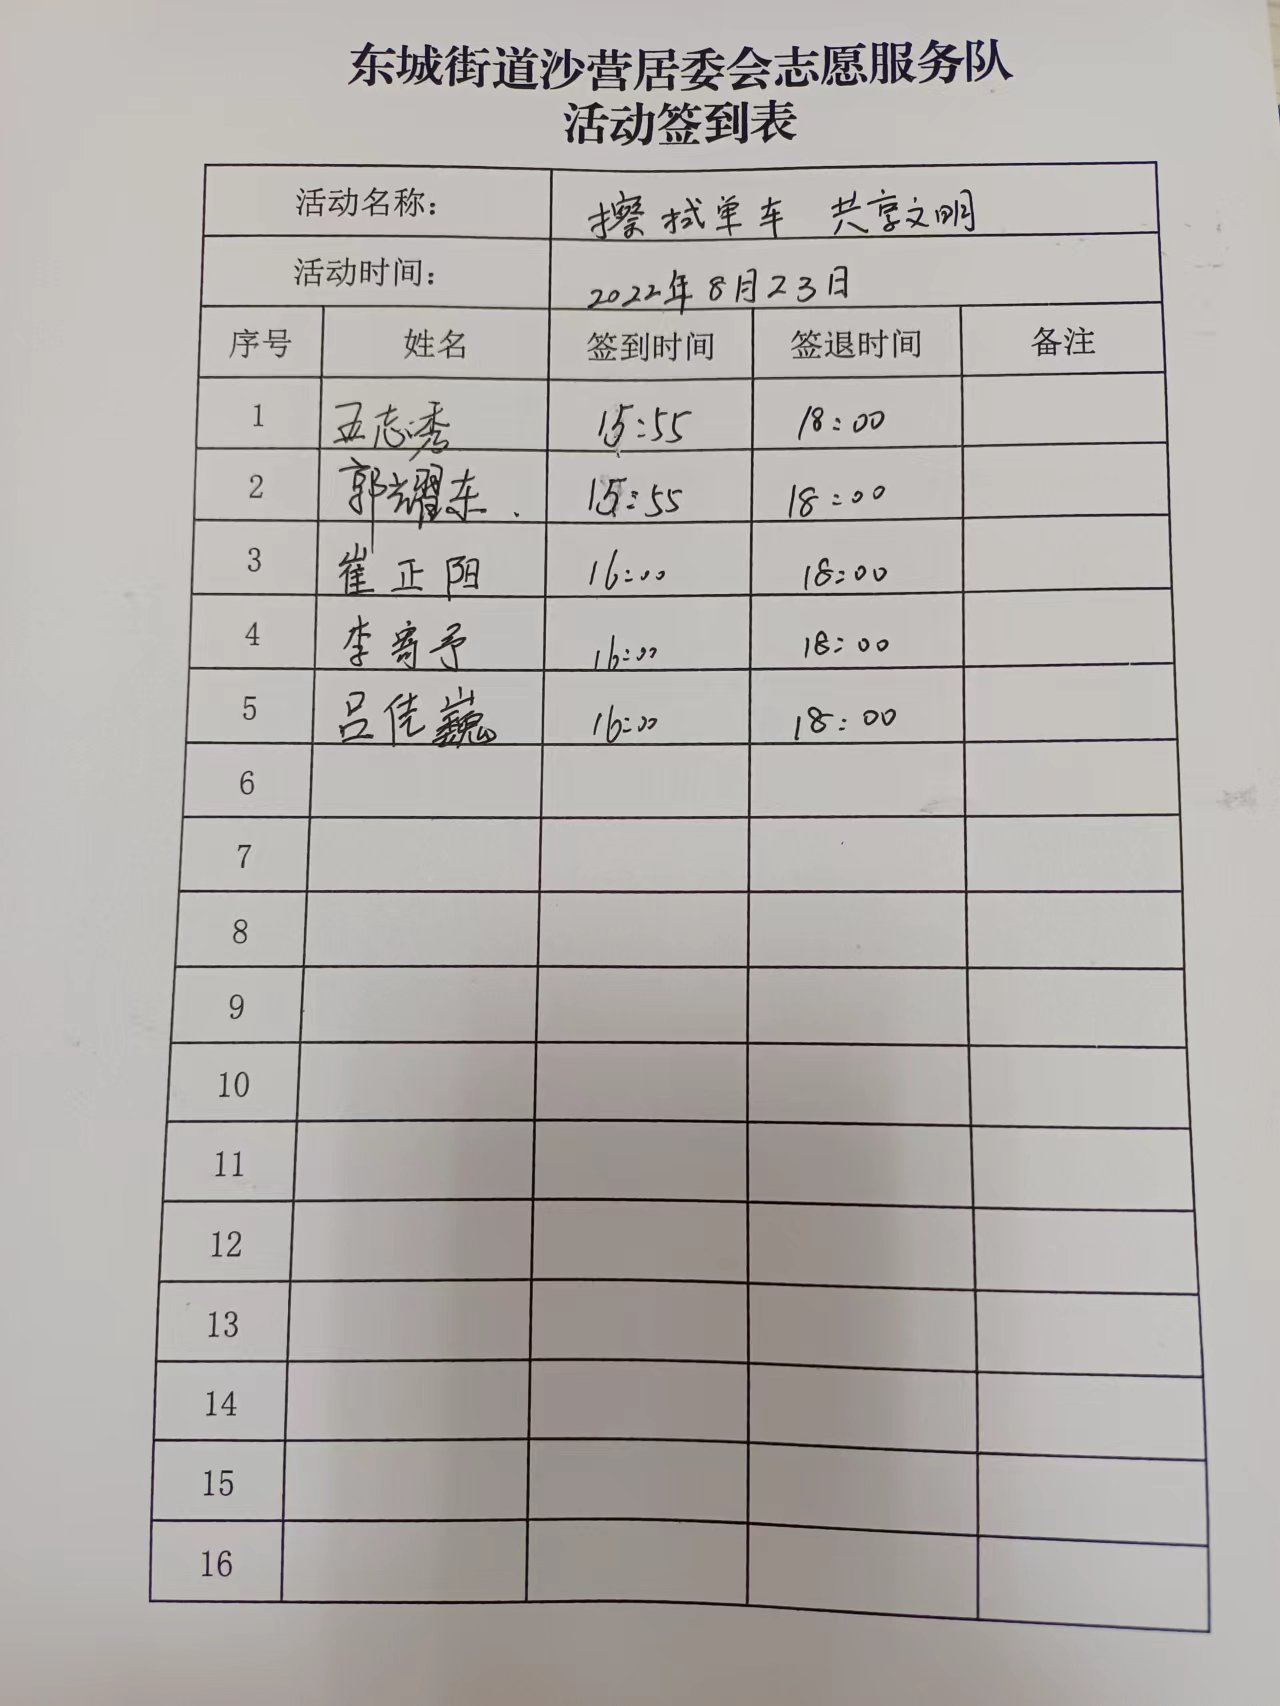 东城街道沙营居委会志愿服务队
活动签到表
活动名称： 擦拭单车 共享文明
活动时间： 2022年8月23日
序号 姓名 签到时间 签退时间 备注
1 五志秀 15:55 18:00
2 郭耀东 15:55 18:00
3 崔正阳 16:00 18:00
4 李寄予 16:00 18:00
5 吕佳巍 16:00 18:00
6
7
8
9
10
11
12
13
14
15
16